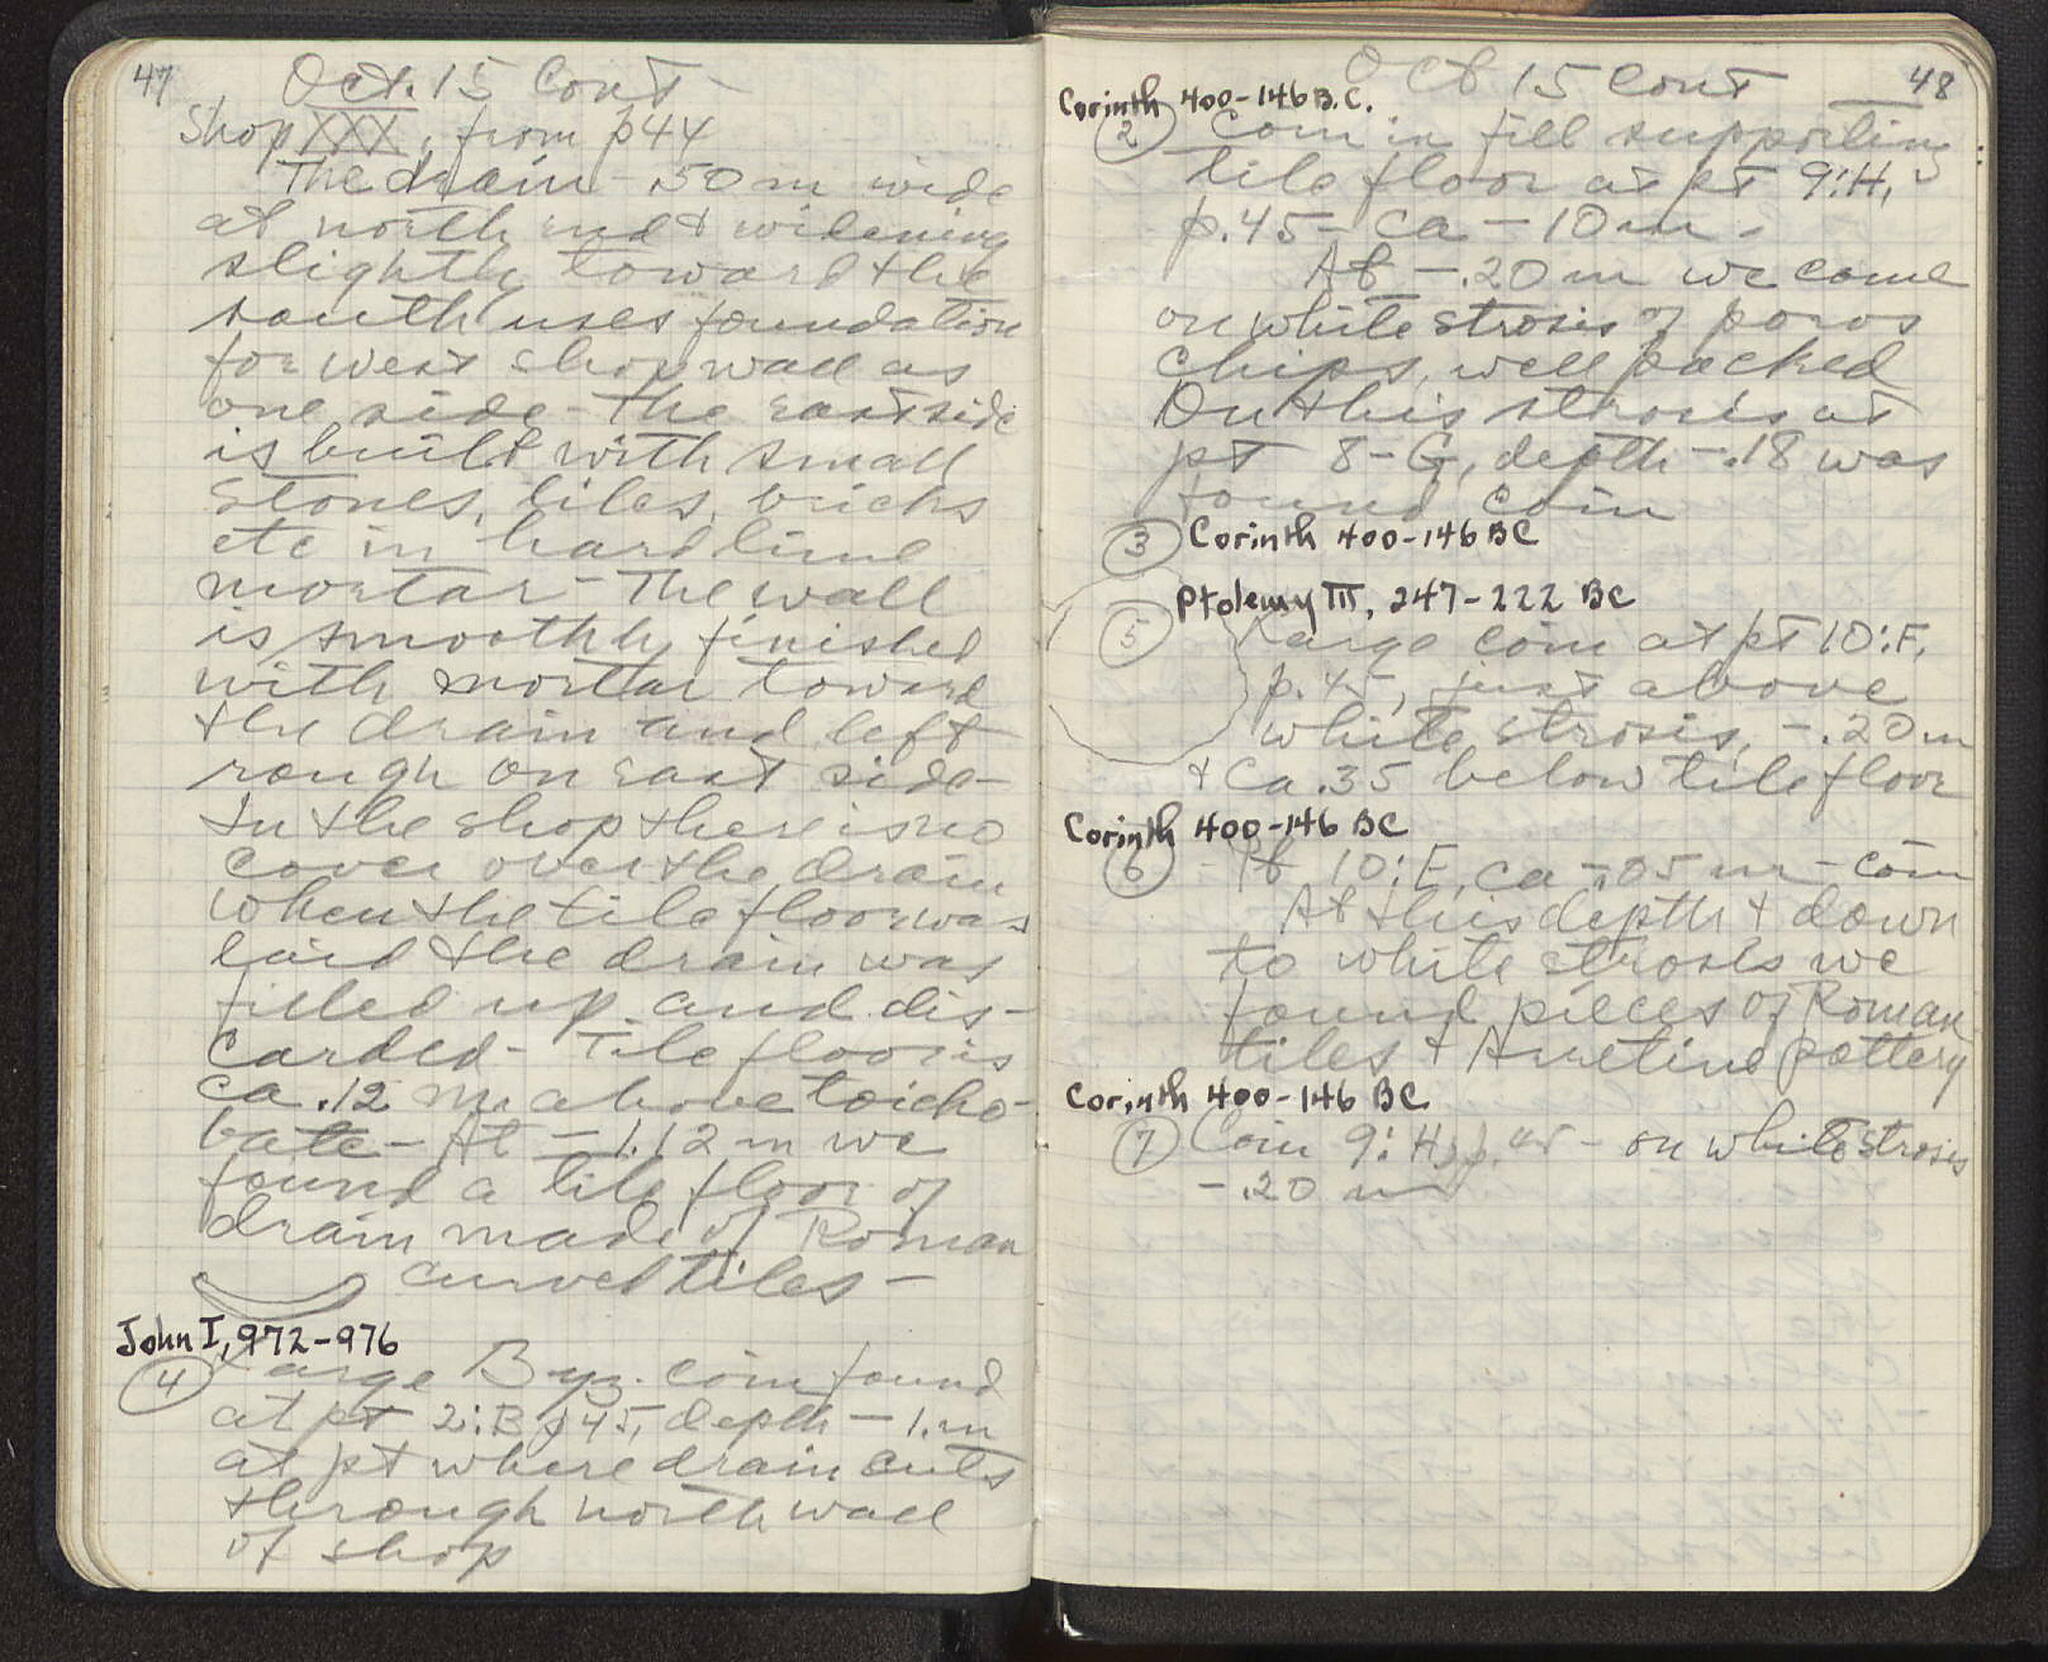 47
Oct. 15 Cont -
Shop XXX, from p44
The drain - .50 m wide
at north end & widening
slightly toward the
south uses foundation
for west shop wall as
one side - The east side
is built with small
stones, tiles, bricks
etc in hard lime
mortar - The wall
is smoothly finished
with mortar toward
the drain and left
rough on east side -
In the shop there is no
cover over the drain
when the tile floor was
laid the drain was
filled up and dis-
carded - Tile floor is
ca .12 m above toicho-
bate - At - 1.12 m we
found a tile floor of
drain made of Roman
curved tiles -
John I, 972-976
4 Large Byz. coin found
at pt 2:B p45, depth - 1.m
at pt where drain cuts
through north wall
of shop
48
Oct 15 Cont
Corinth 400-146 B.C.
2 Coin in fill supporting
tile floor at pt 9:H,
p.45 - ca - 10 m -
At - .20 m we come
on white strosis of poros
chips, well packed
On this strosis at
pt 8-G, depth - .18 was
found coin
3 Corinth 400-146 BC
Ptolemy III, 247-222 BC
5 Large coin at pt 10:F,
p.45, just above
white strosis, - .20 m
& ca .35 below tile floor
Corinth 400-146 BC
6 - At 10:E, ca - .05 m - coin
At this depth & down
to white strosis we
found pieces of Roman
tiles & Arretine pottery
Corinth 400-146 BC
7 Coin 9:H, p.45 - on white strosis
- .20 m